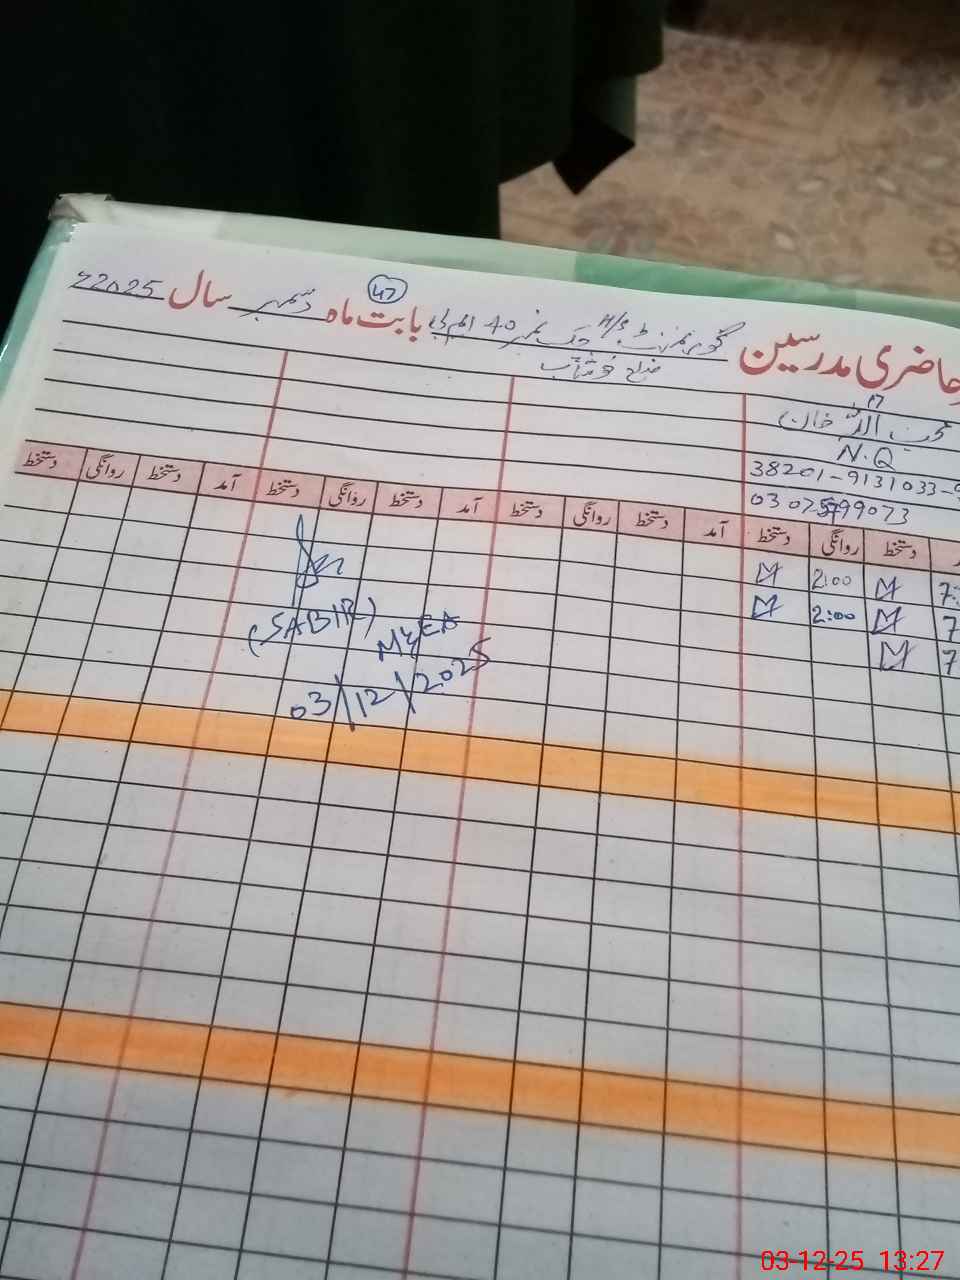 حاضری مدرسین گورنمنٹ H/S چک نمبر 40 ایم بی بابت ماہ دسمبر سال 2025ء
47
ضلع خوشاب
محب اللہ خان
N.Q
38201-9131033-9
دستخط روانگی دستخط آمد دستخط روانگی دستخط آمد دستخط روانگی دستخط آمد دستخط روانگی دستخط
2:00 7:
2:00 7
7
(SABIR)
M&EA
03/12/2025
03-12-25 13:27